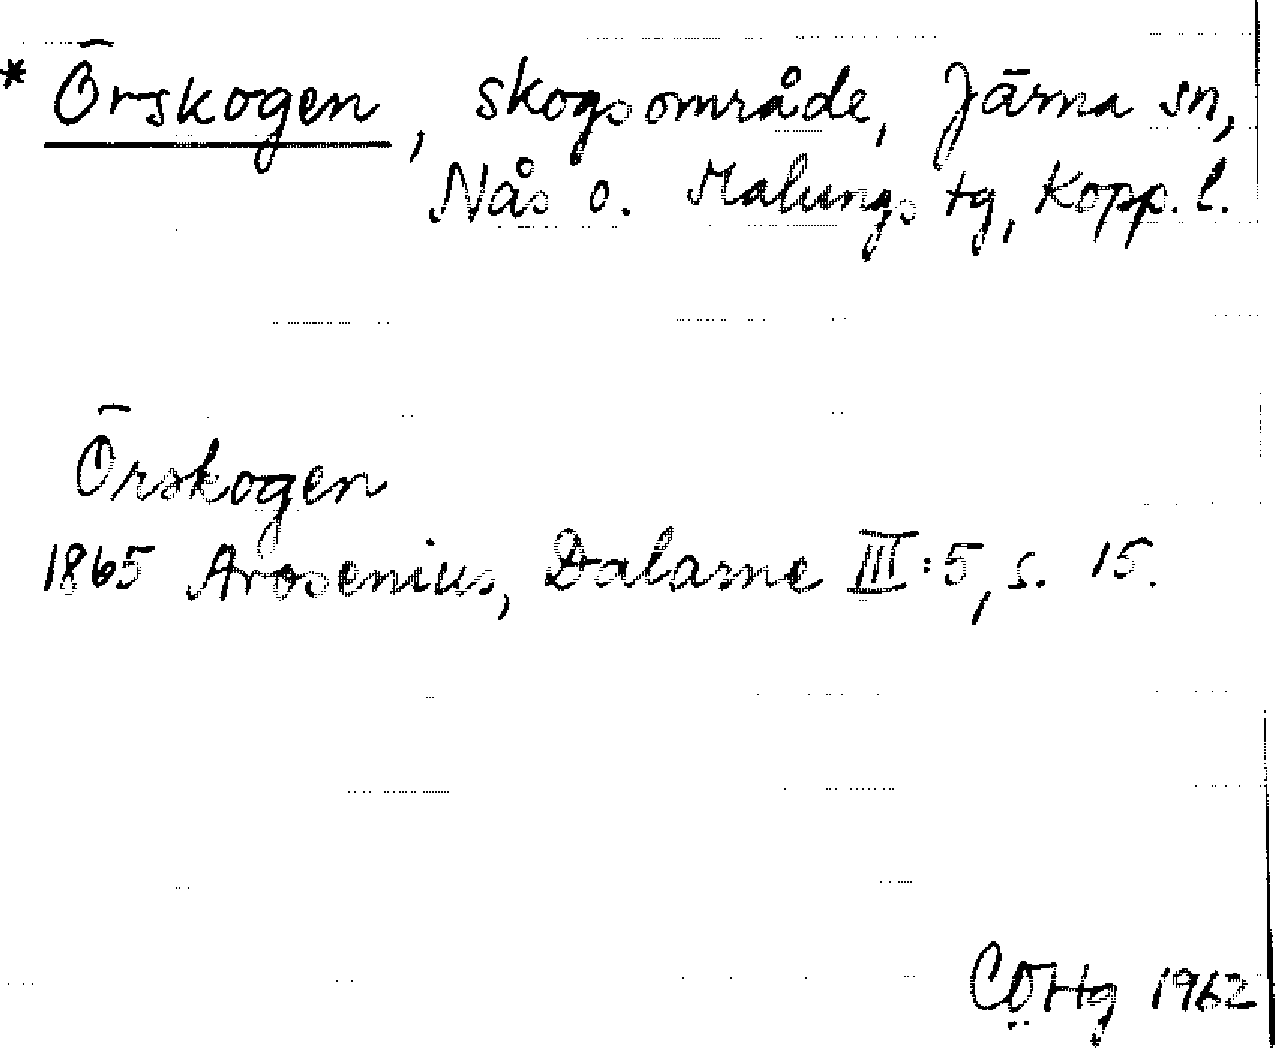 * Örskogen, skogsområde, Järna sn,
Nås o. Malungs tg, Kopp. l.
Örskogen
1865 Arosenius, Dalarne III:5, s. 15.
1962